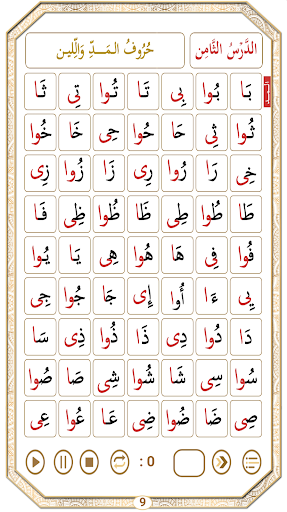 الدَّرْسُ الثَّامِن حُرُوفُ الـمَـــدِّ وَاللِّيـن
بَا بُوا بِى تَا تُوا تِى ثَا
ثُوا ثِى حَا حُوا حِى خَا خُوا
خِى رَا رُوا رِى زَا زُوا زِى
طَا طُوا طِى ظَا ظُوا ظِى فَا
فُوا فِى هَا هُوا هِى يَا يُوا
يِى ءَا أُوا إِى جَا جُوا جِى
دَا دُوا دِى ذَا ذُوا ذِى سَا
سُوا سِى شَا شُوا شِى صَا صُوا
صِى ضَا ضُوا ضِى عَا عُوا عِى
: 0
9